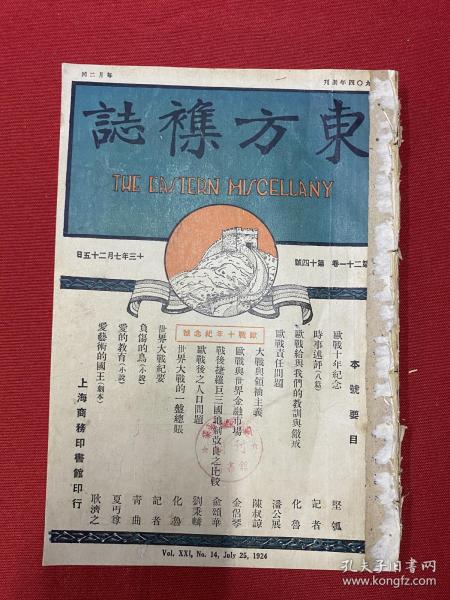 九〇四年創刊
每月二回
東方襍誌
THE EASTERN MISCELLANY
第二十一卷 第十四號
十三年七月二十五日
本號要目
歐戰十年紀念 堅瓠
時事述評(八篇) 記者
歐戰給與我們的教訓與儆戒 化魯
歐戰責任問題 潘公展
歐戰十年紀念號
大戰與領袖主義 陳叔諒
歐戰與世界金融市場 金侶琴
戰後捷羅巨三國地制改良之比較 俞頌華
歐戰後之人口問題 劉秉麟
世界大戰的一盤總賬 化魯
世界大戰紀要 記者
負傷的鳥(小說) 青曲
愛的教育(小說) 夏丏尊
愛藝術的國王(劇本) 耿濟之
上海商務印書館印行
Vol. XXI, No. 14, July 25, 1924
孔夫子旧书网